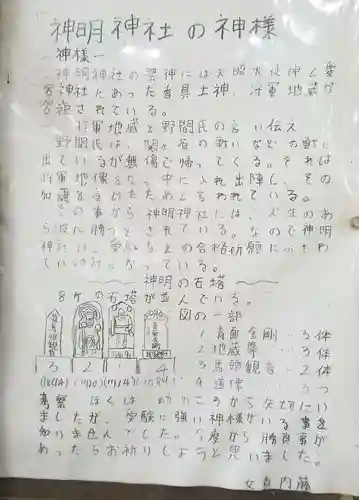 神明神社の神様
ー神様ー
神明神社の祭神には天照大
宮神社にあった香具土神、将軍地蔵が
合祀されている。
将軍地蔵と野間氏の言い伝え
野間氏は、関ヶ原の戦いなどの戦に
出ているが無傷で帰ってくる。それは
将軍地像を 中に入れ出陣し、その
加護を受けたためと言われている。
この事から神明神社には、人生のあ
らに勝つとされている。なので神明
神社は、受験などの合格祈願にふさわ
しい神社となっている。
神明の石塔
8ケの石塔が並んでいる。
図の一部
1 青面金剛…3体
2 地蔵尊…3体
3 馬頭観音…2体
4 道標…3つ
3 2 1 4
考察 ぼくは幼いころから矢切にい
ましたが、受験に強い神様がいる事を
知りませんでした。今度から勝負事が
あったらお祈りしようと思いました。
文責 内藤